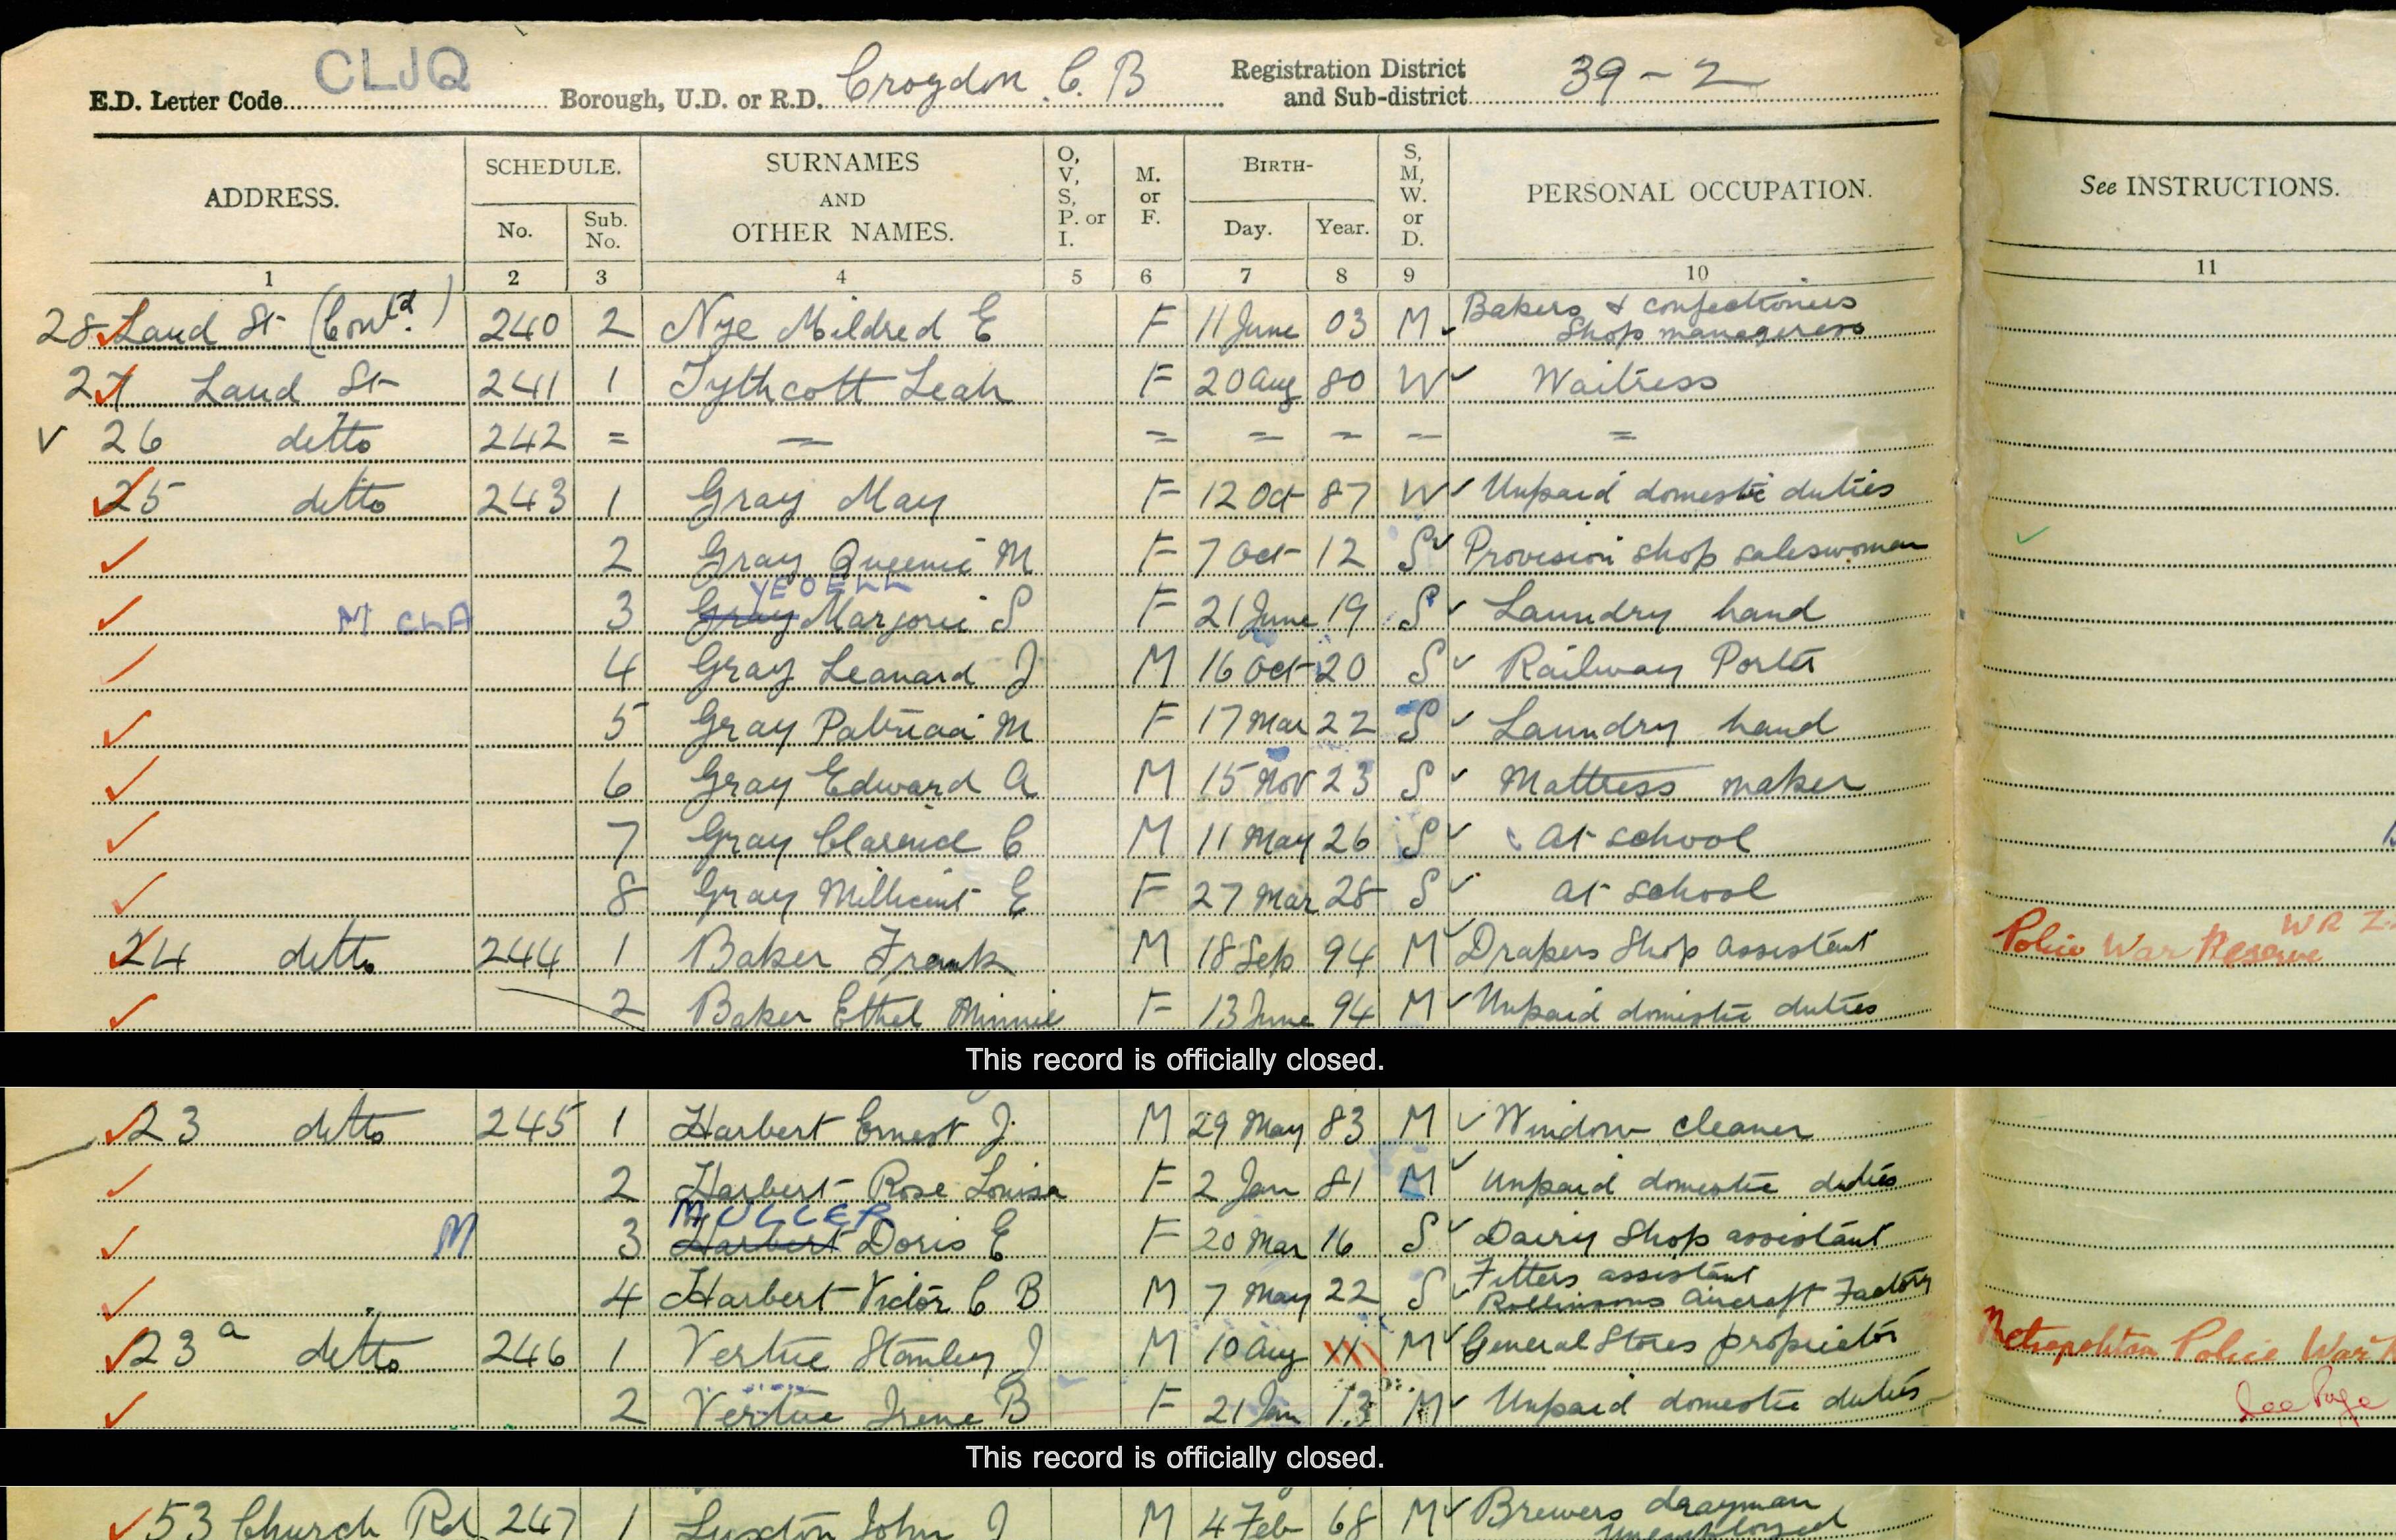 E.D. Letter Code CLJQ Borough, U.D. or R.D. Croydon C. B Registration District and Sub-district 39-2
ADDRESS. SCHEDULE. SURNAMES AND OTHER NAMES. O, V, S, P. or I. M. or F. BIRTH- S, M, W. or D. PERSONAL OCCUPATION. See INSTRUCTIONS.
No. Sub. No. Day. Year.
1 2 3 4 5 6 7 8 9 10 11
28 Laud St (Contd.) 240 2 Nye Mildred E F 11 June 03 M Bakers & confectioners
Shop manageress
27 Laud St 241 1 Tythcott Leah F 20 Aug 80 W Waitress
26 ditto 242 = = = = = = =
25 ditto 243 1 Gray May F 12 Oct 87 W Unpaid domestic duties
2 Gray Queenie M F 7 Oct 12 S Provision shop saleswoman
YEOELL
M CLA 3 Gray Marjorie S F 21 June 19 S Laundry hand
4 Gray Leonard J M 16 Oct 20 S Railway Porter
5 Gray Patricia M F 17 Mar 22 S Laundry hand
6 Gray Edward A M 15 Nov 23 S Mattress maker
7 Gray Clarence C M 11 May 26 S At school
8 Gray Millicent E F 27 Mar 28 S At school
24 ditto 244 1 Baker Frank M 18 Sep 94 M Drapers Shop assistant Police War Reserve WR
2 Baker Ethel Minnie F 13 June 94 M Unpaid domestic duties
This record is officially closed.
23 ditto 245 1 Harbert Ernest J. M 29 May 83 M Window cleaner
2 Harbert Rose Louisa F 2 Jan 81 M Unpaid domestic duties
MULLER
M 3 Harbert Doris E F 20 Mar 16 S Dairy Shop assistant
4 Harbert Victor C B M 7 May 22 S Fitters assistant
Rollinsons Aircraft Factory
23a ditto 246 1 Vertue Stanley J M 10 Aug 11 M General Stores proprietor Metropolitan Police War
2 Vertue Irene B F 21 Jan 13 M Unpaid domestic duties See Page
This record is officially closed.
53 Church Rd 247 1 Luxton John J M 4 Feb 68 M Brewers drayman
Unemployed